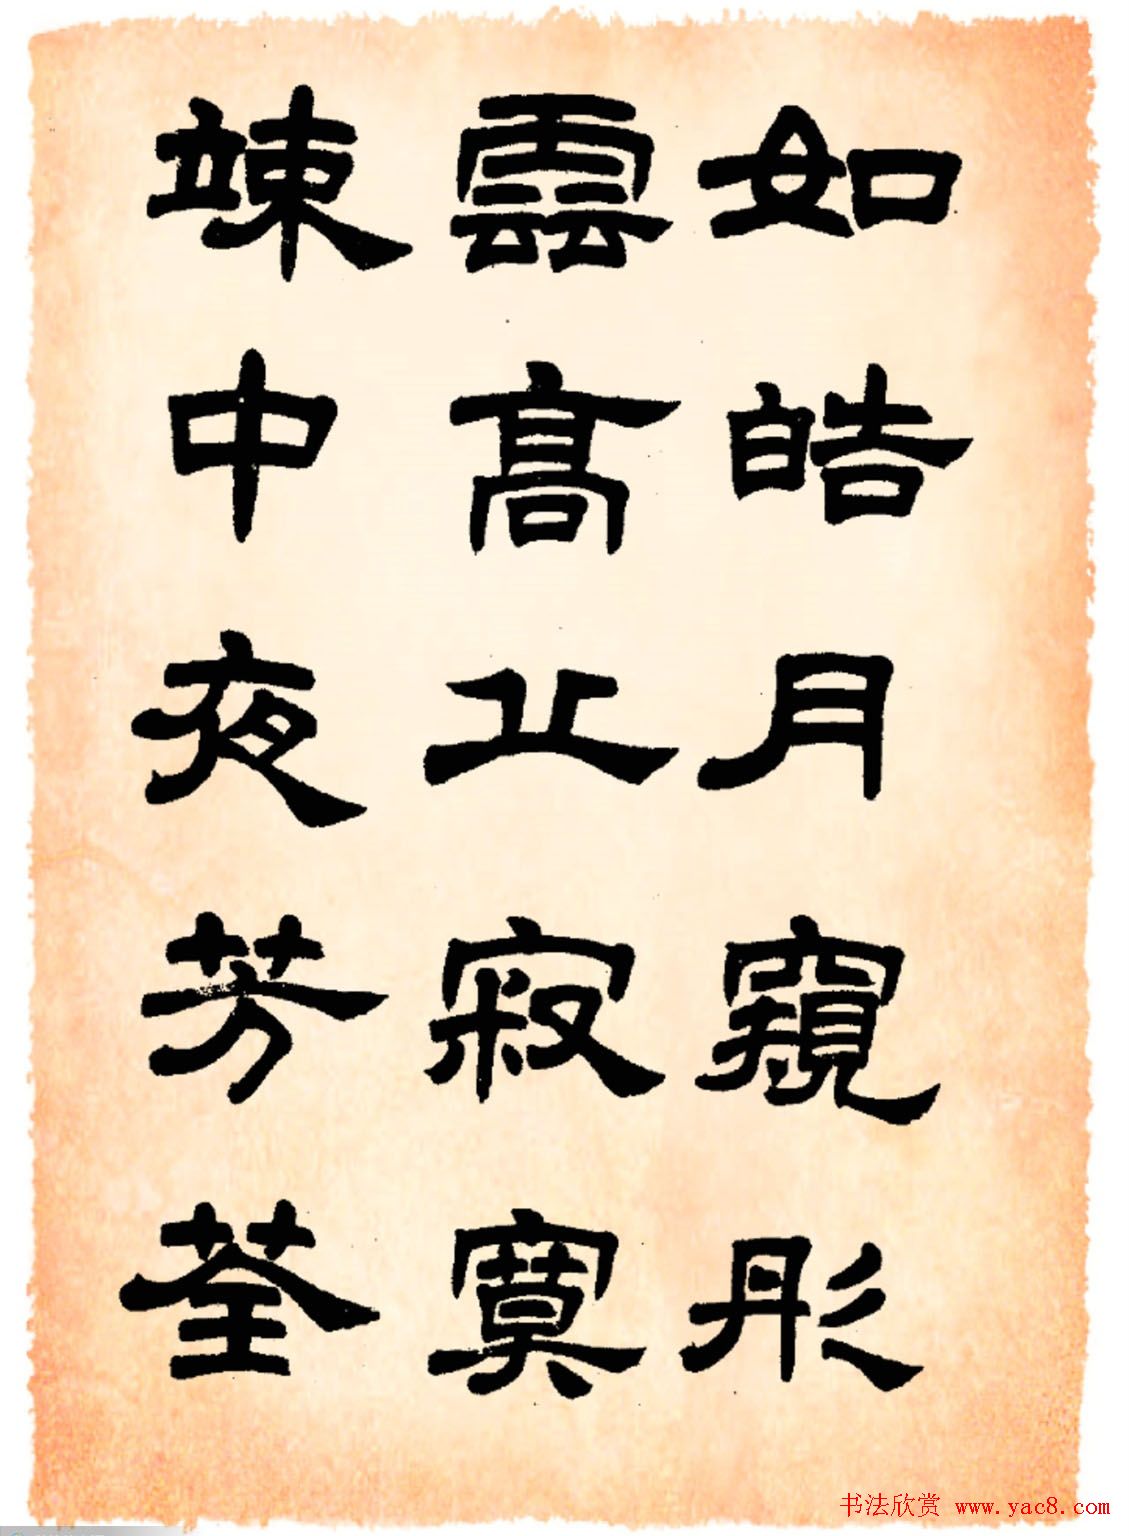 如皓月窺彤
雲高止寂寞
竦中夜芳荃
书法欣赏 www.yac8.com